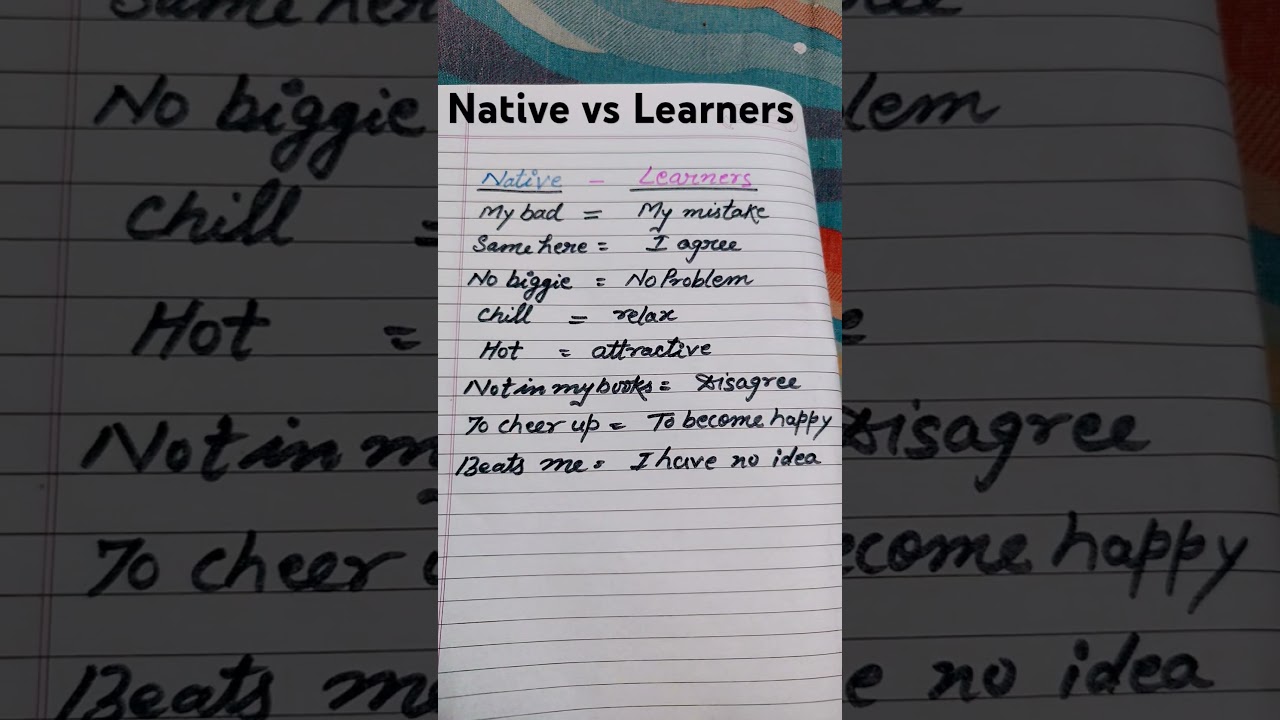 Native vs Learners
Native - Learners
My bad = My mistake
Same here = I agree
No biggie = No Problem
Chill = relax
Hot = attractive
Not in my books = Disagree
To cheer up = To become happy
Beats me = I have no idea